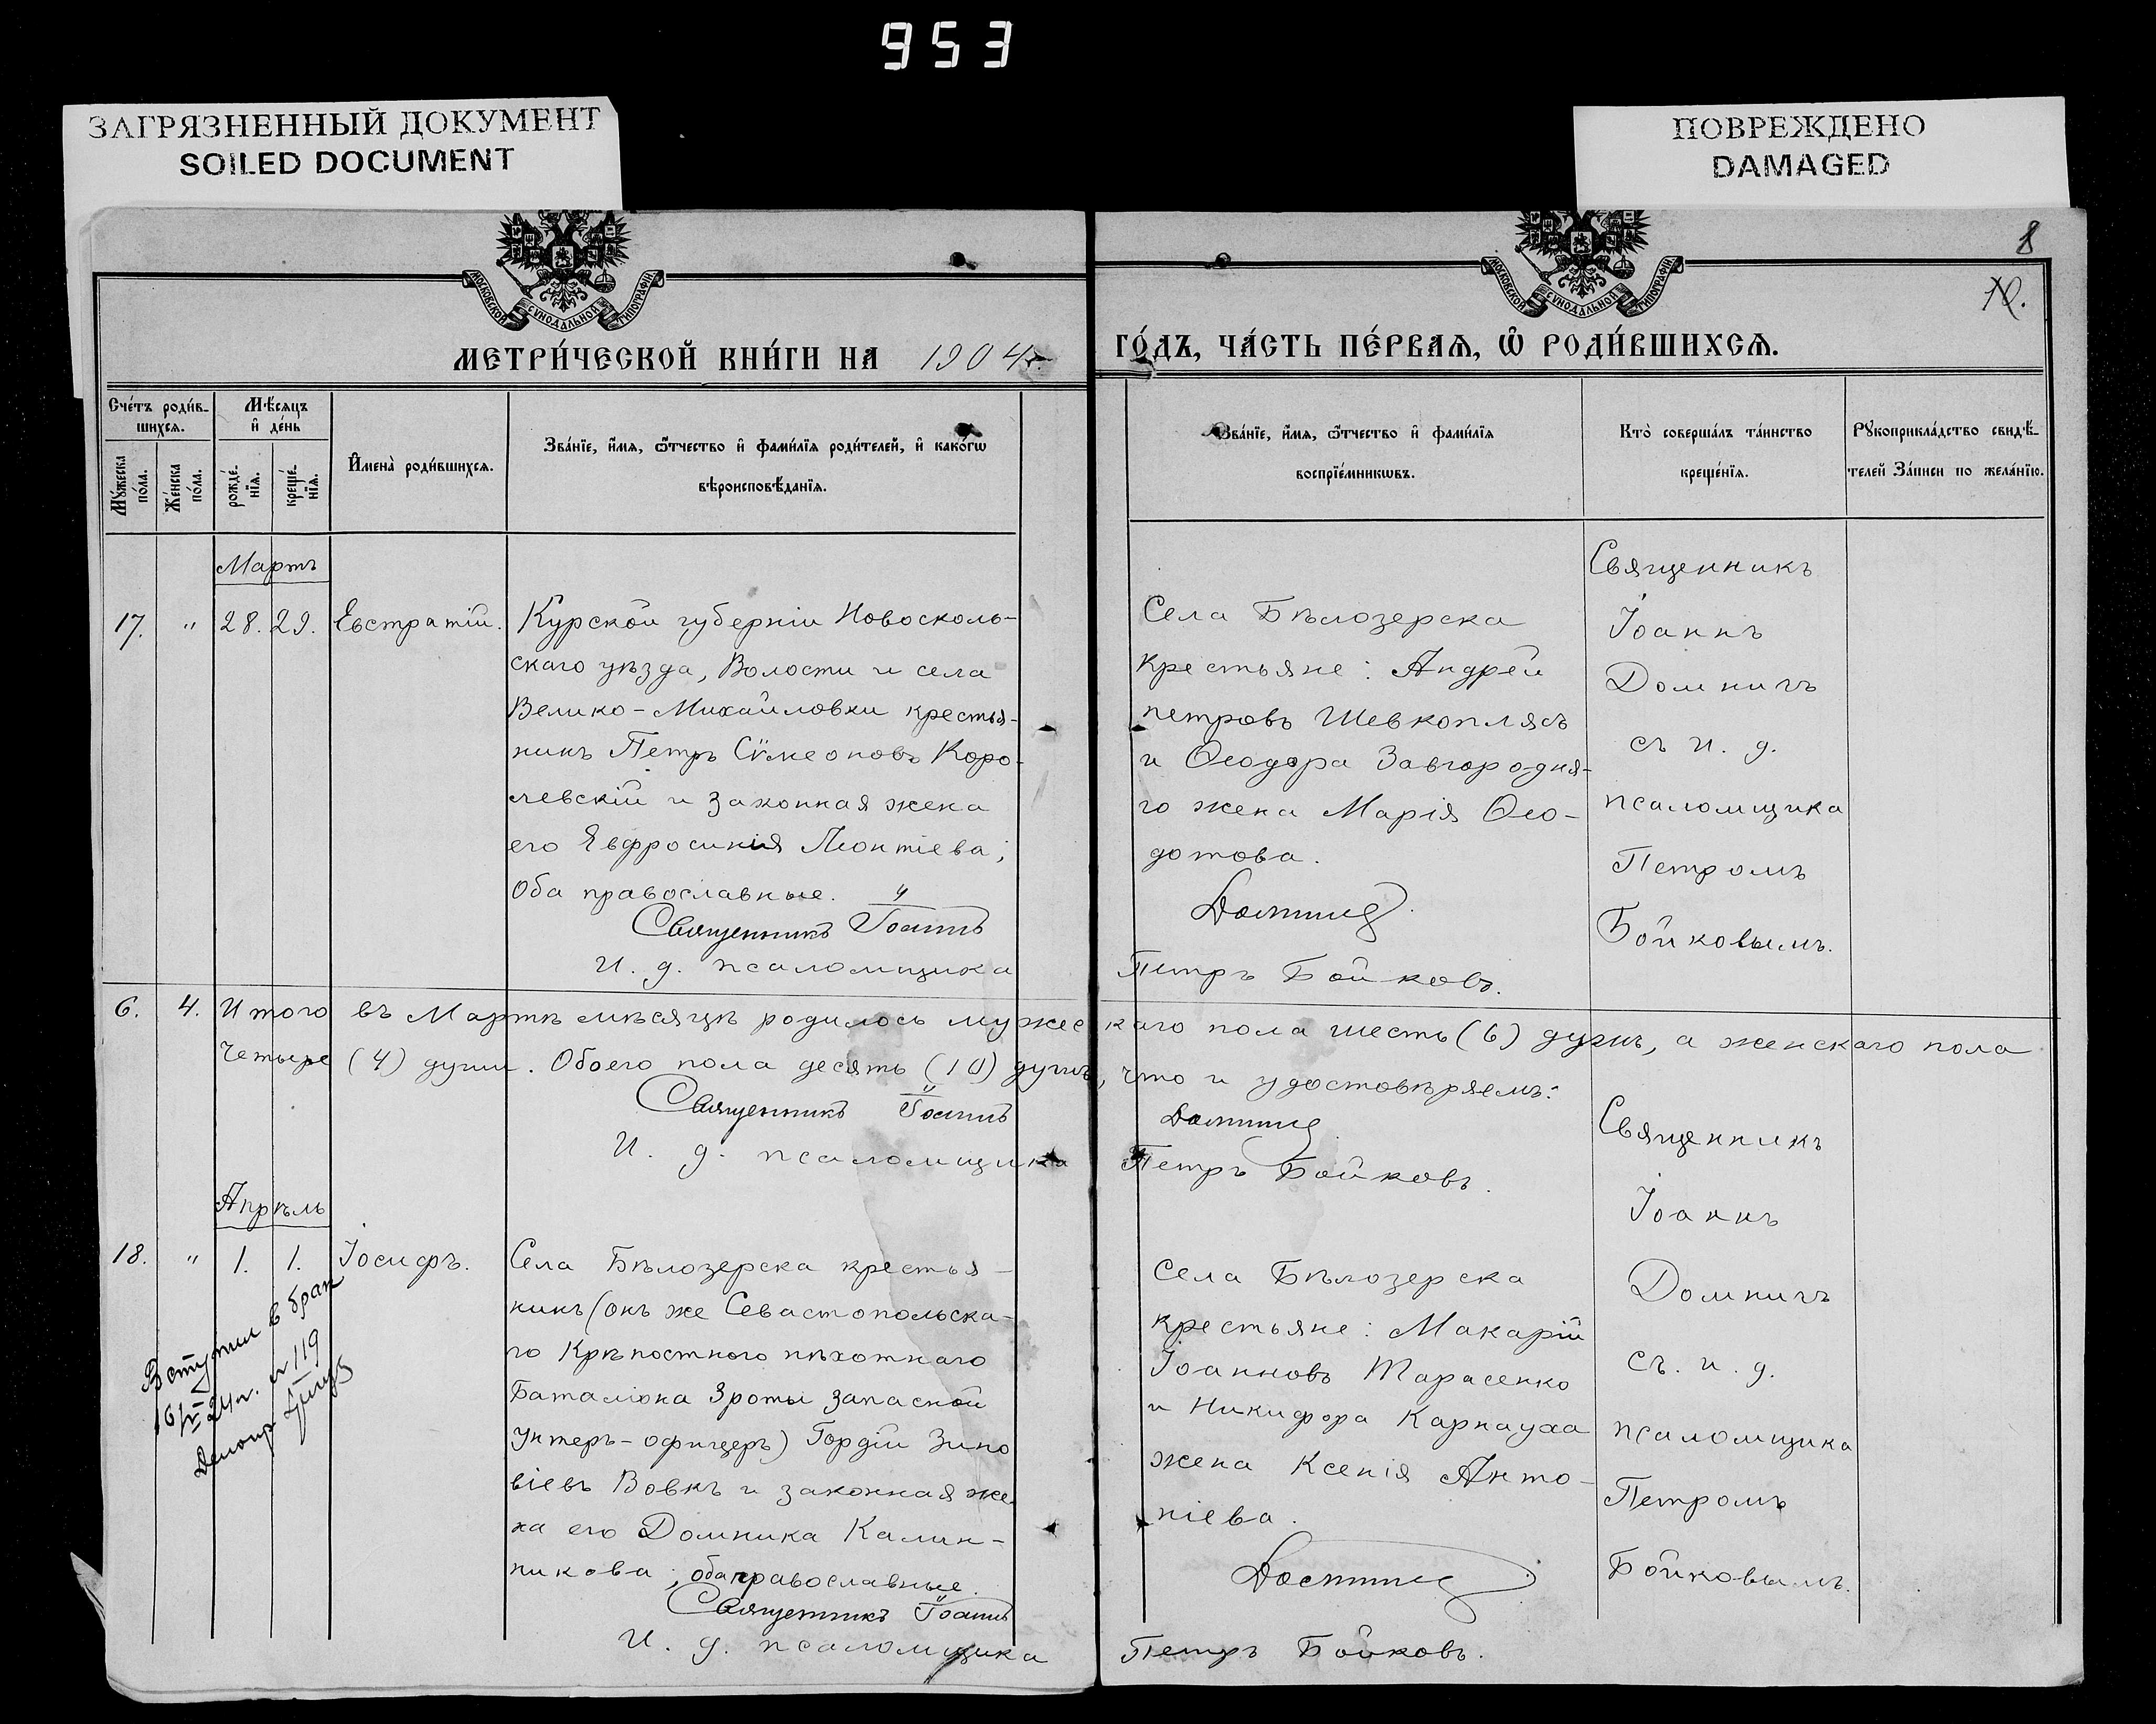 953
ЗАГРЯЗНЕННЫЙ ДОКУМЕНТ
SOILED DOCUMENT
ПОВРЕЖДЕНО
DAMAGED
МОСКОВСКОЙ СѴНОДАЛЬНОЙ ТИПОГРАФІИ
МОСКОВСКОЙ СѴНОДАЛЬНОЙ ТИПОГРАФІИ
8
10.
МЕТРИ́ЧЕСКОЙ КНИ́ГИ НА 1904 г.
ГО́ДЪ, ЧА́СТЬ ПЕ́РВАѦ, Ѡ҆ РОДИ́ВШИХСѦ.
Сче́тъ роди́в-
шихсѧ.
Му́жеска по́ла.
Же́нска по́ла.
Мѣ́сѧцъ
и҆ де́нь
рожде́-
нїѧ.
креще́-
нїѧ.
И҆мена̀ роди́вшихсѧ.
Зва́нїе, и҆́мѧ, ѻ҆́тчество и҆ фами́лїѧ роди́телей, и҆ како́гѡ
вѣроисповѣ́данїѧ.
Зва́нїе, и҆́мѧ, ѻ҆́тчество и҆ фами́лїѧ
воспрїе́мникѡвъ.
Кто̀ соверша́лъ та́инство
креще́нїѧ.
Рꙋкоприкла́дство свидѣ́-
телей за́писи по жела́нїю.
Мартъ
17. " 28. 29. Евстратій.
Курской губерніи Новосколь-
скаго уѣзда, Волости и села
Велико-Михайловки крестья-
нинъ Петръ Сѵмеоновъ Коро-
левскій и законная жена
его Евфросинія Леонтіева;
Оба православные.
Священникъ Іоаннъ
И. д. псаломщика
Села Бѣлозерска
крестьяне: Андрей
петровъ Шевкоплясъ
и Ѳеодора Завгородня-
го жена Марія Ѳео-
дотова.
Домнич
Петръ Бойковъ.
Священникъ
Іоаннъ
Домничъ
съ и. д.
псаломщика
Петромъ
Бойковымъ.
6. 4. Итого въ Мартѣ мѣсяцѣ родилось мужескаго пола шесть (6) душъ, а женскаго пола
четыре (4) души. Обоего пола десять (10) душъ, что и удостовѣряемъ:
Священникъ Іоаннъ Домнич
И. д. псаломщика Петръ Бойковъ.
Апрѣль
18. " 1. 1. Іосифъ.
Вступил в брак
24 г. № 119
Села Бѣлозерска крестья-
нинъ (онъ же Севастопольска-
го Крѣпостного пѣхотнаго
Баталіона 3 роты запасной
унтеръ-офицеръ) Гордій Зино
віевъ Вовкъ и законная же
на его Домника Калин-
никова; оба православные.
Священникъ Іоаннъ
И. д. псаломщика
Села Бѣлозерска
крестьяне: Макарій
Іоанновъ Тарасенко
и Никифора Карнауха
жена Ксенія Анто-
ніева.
Домнич
Петръ Бойковъ.
Священникъ
Іоаннъ
Домничъ
съ. и. д.
псаломщика
Петромъ
Бойковымъ.